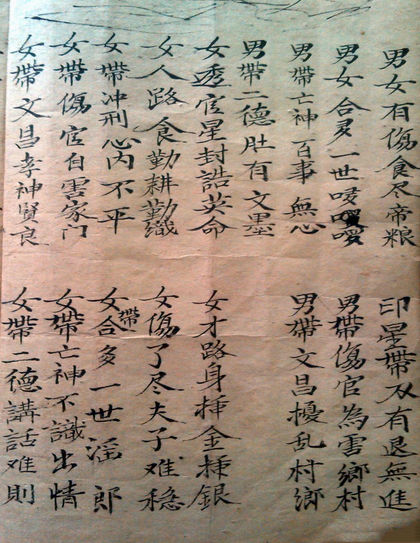 男女有傷食尽帝粮 印星帶刃有退無進
男女合多一世 男帶傷官為害鄉村
男帶亡神百事無心 男帶文昌擾乱村鄉
男帶二德肚有文墨
女透官星封誥英命 女才路身挿金挿銀
女人路食勤耕勤織 女傷了尽夫子难稳
女帶冲刑心内不平 女合帶多一世滛郎
女帶傷官自害家门 女帶亡神不識出情
女帶文昌孝神賢良 女帶二德講話难則